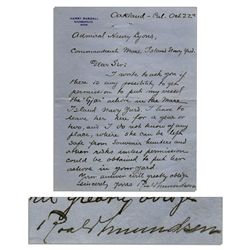 HARRY RANDALL
Oakland - Cal. Oct 22nd
Admiral Henry Lyons,
Commandant Mare Island Navy Yard.
Dear Sir:
I write to ask you if
there is any possibility to get
permission to put my vessel
the "Gjøa" action in the Mare
Island Navy Yard. I have to
leave her here for a year or
two, and I do not know of any
place, where she can be left
safe from souvenir hunters and
other risks unless permission
could be obtained to put her
ashore in your yard.
Your answer will greatly oblige
Sincerely yours Roald Amundsen
will greatly oblige
Roald Amundsen